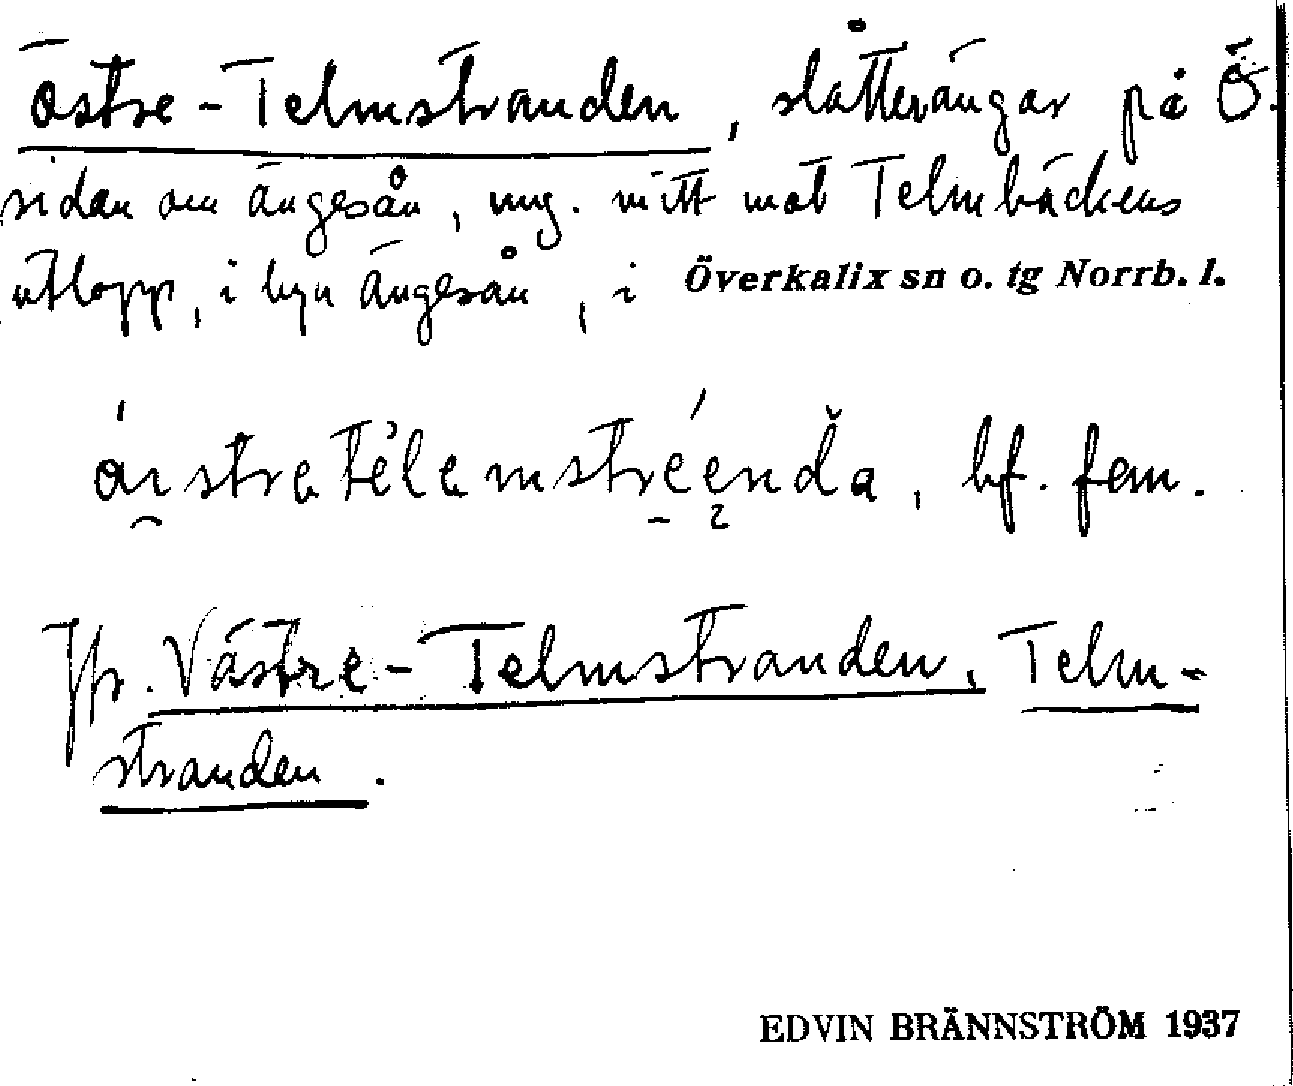 Östre-Telmstranden, slåtterängar på Ö.
sidan om Ängesån, ung. mitt mot Telmbäckens
utlopp, i byn Ängesån, i Överkalix sn o. tg Norrb. l.
bf. fem.
Jfr. Västre-Telmstranden, Telm-
stranden.
EDVIN BRÄNNSTRÖM 1937